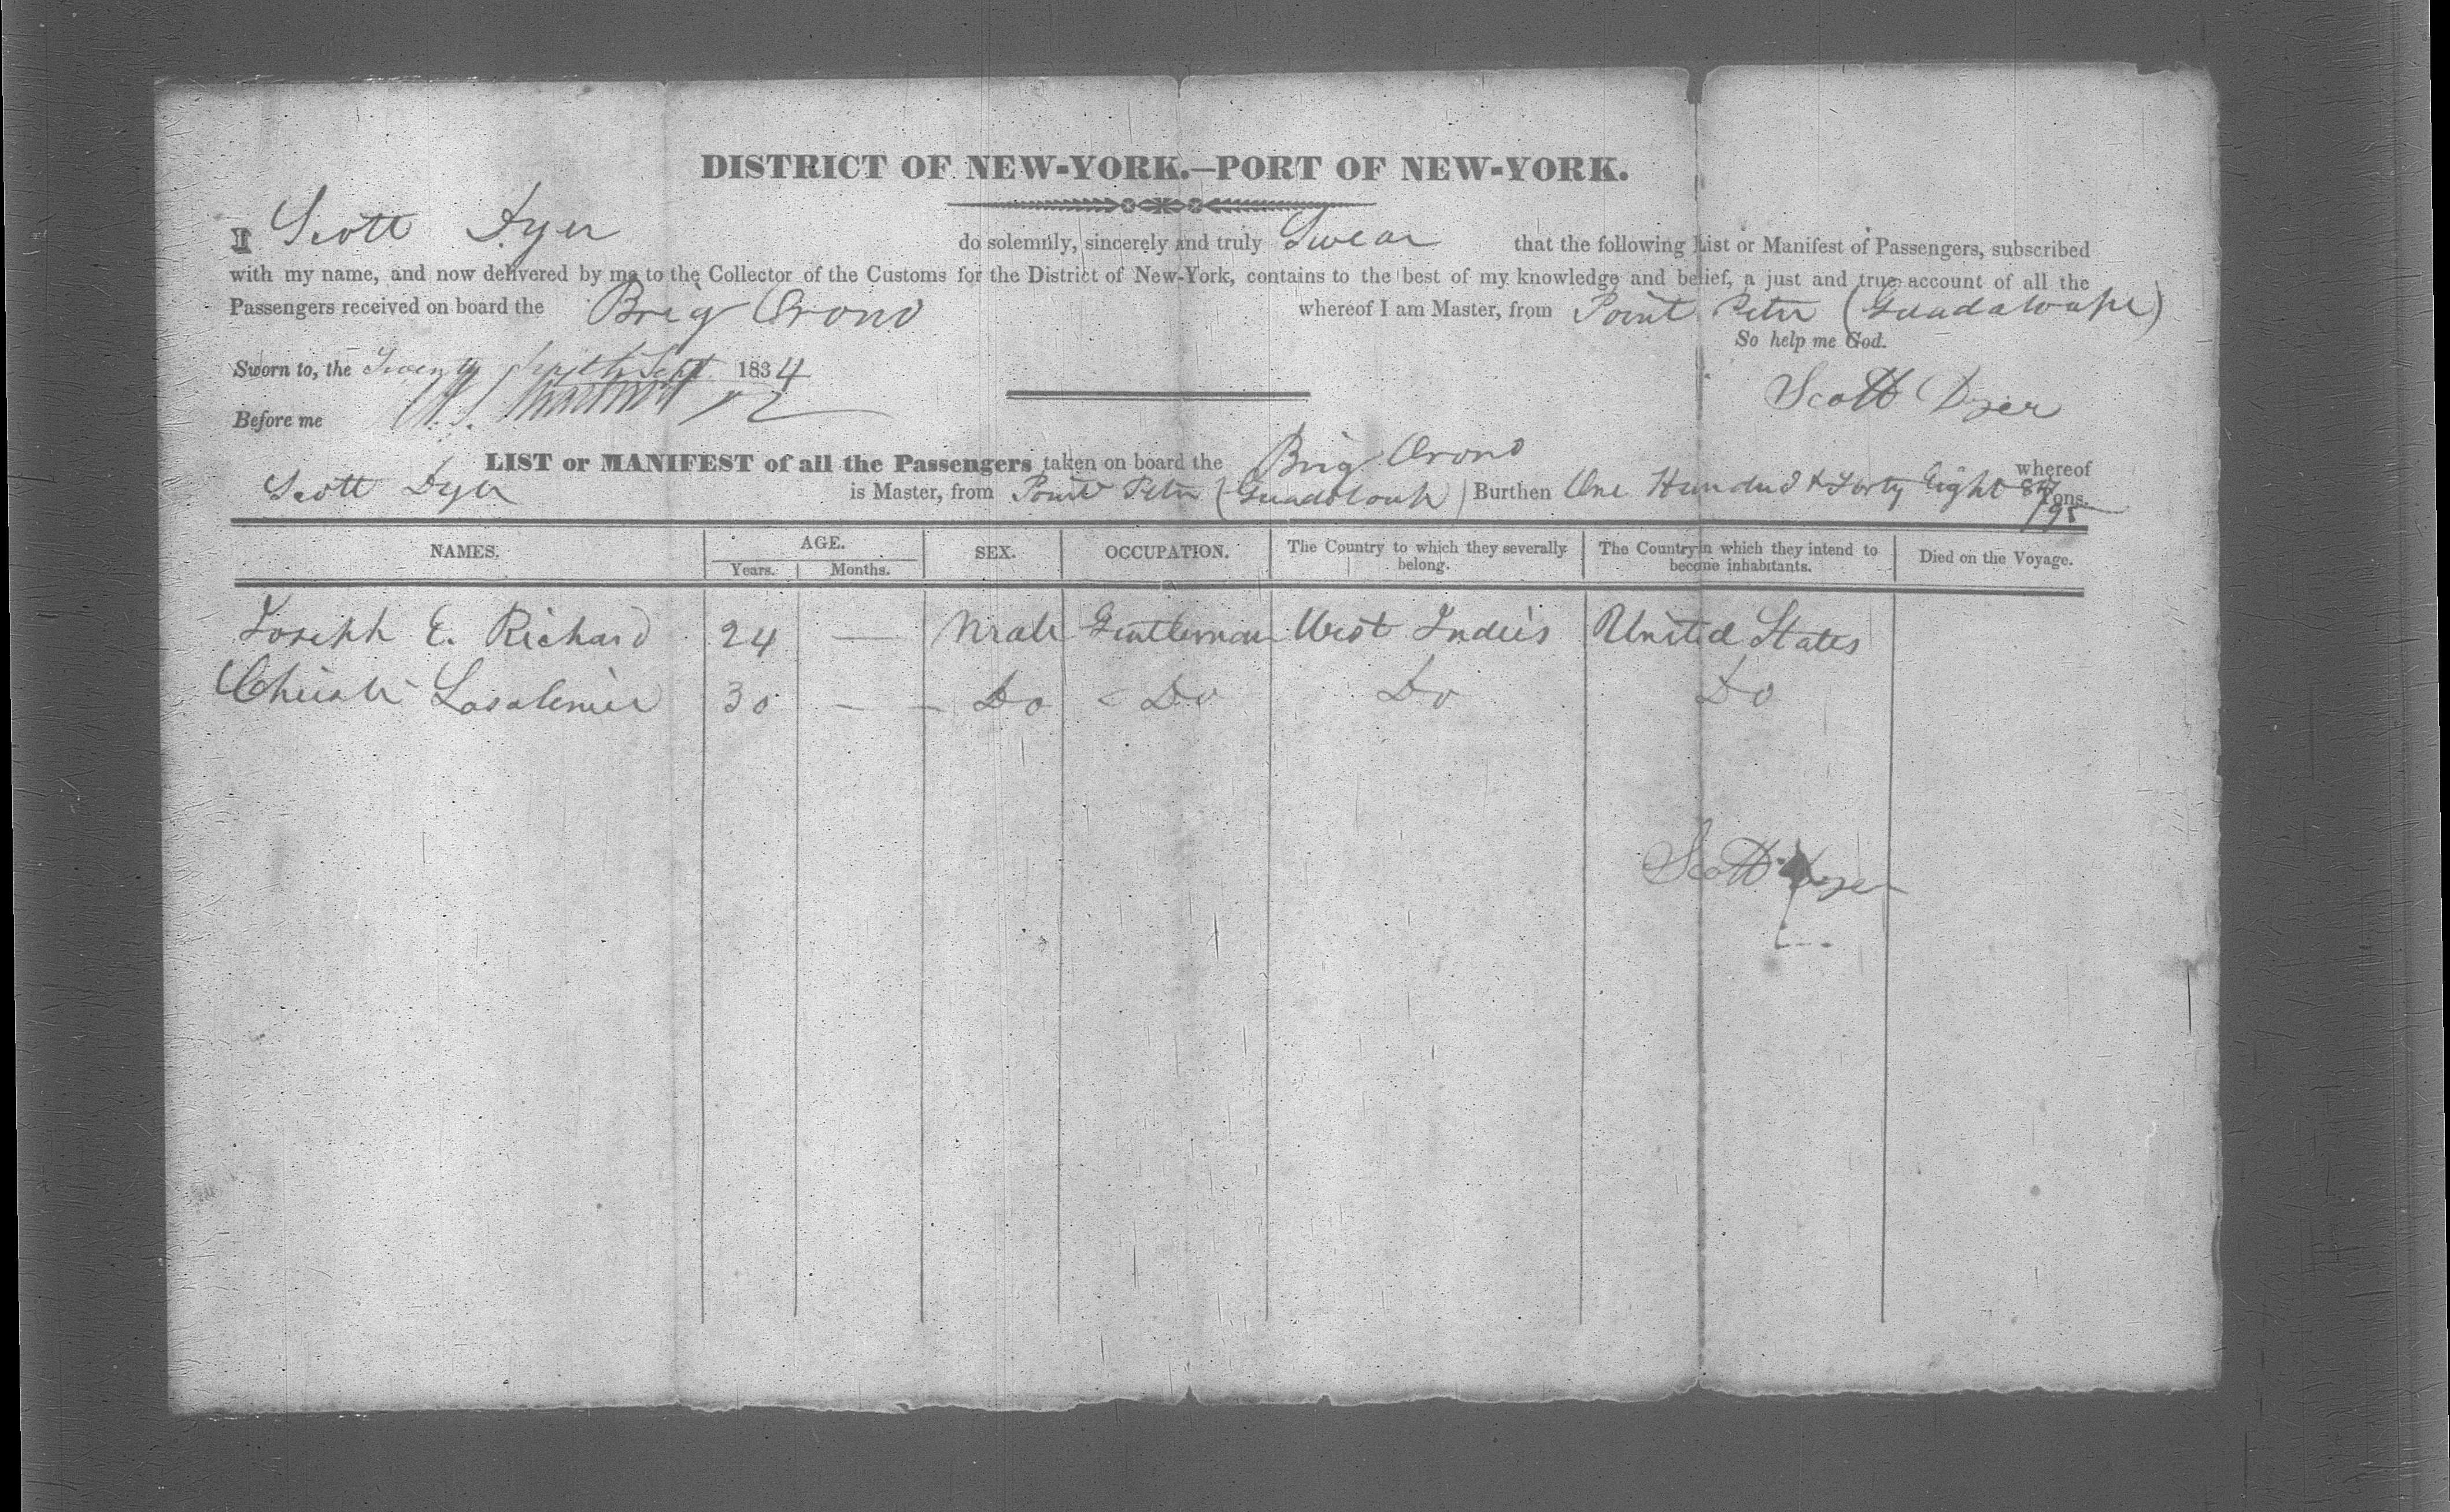 DISTRICT OF NEW-YORK.—PORT OF NEW-YORK.
I Scott Dyer do solemnly, sincerely and truly Swear that the following List or Manifest of Passengers, subscribed
with my name, and now delivered by me to the Collector of the Customs for the District of New-York, contains to the best of my knowledge and belief, a just and true account of all the
Passengers received on board the Brig Orono whereof I am Master, from Point Peter (Guadaloupe)
So help me God.
Sworn to, the Twenty Sept 1834
Scott Dyer
Before me
LIST or MANIFEST of all the Passengers taken on board the Brig Orono whereof
Scott Dyer is Master, from Point Peter (Guadaloupe) Burthen One Hundred & Forty Eight 84/95 Tons.
NAMES. AGE. SEX. OCCUPATION. The Country to which they severally belong. The Country in which they intend to become inhabitants. Died on the Voyage.
Years. Months.
Joseph E. Richard 24 — Male Gentleman West Indies United States
Lasalenier 30 — — Do Do Do Do
Scott Dyer